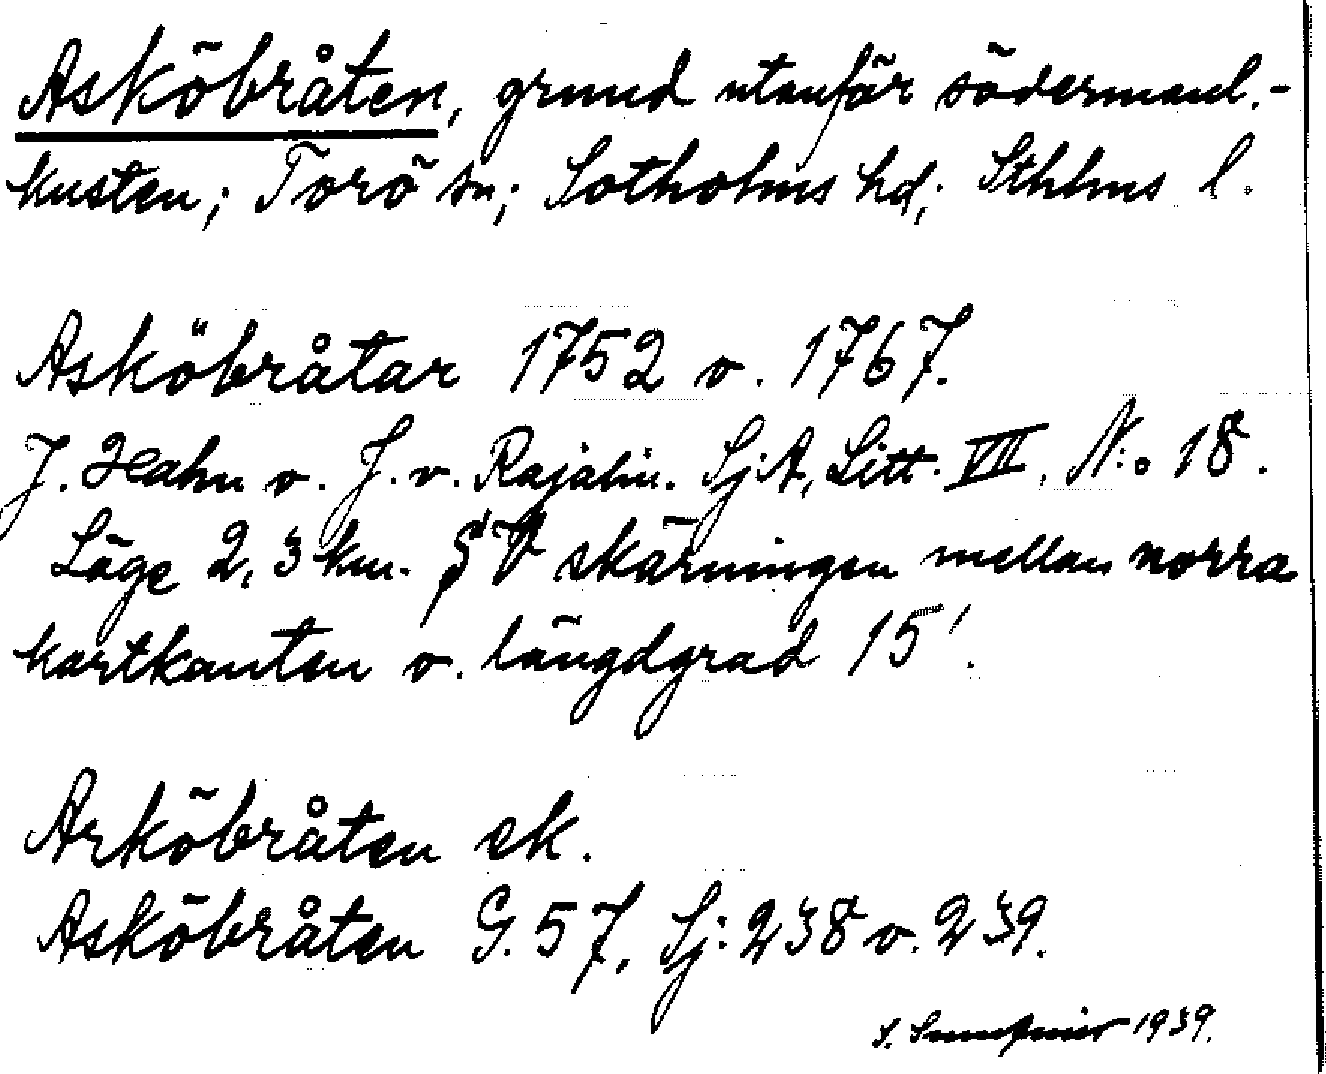 Asköbråten, grund utanför södermanl.-
kusten; Torö sn; Sotholms hd; Sthlms l.
Asköbråtar 1752 o. 1767.
J. Hahn o. J. v. Rajalin. SjA, Litt. VII, N:o 18.
Läge 2,3 km. S V skärningen mellan norra
kartkanten o. längdgrad 15'.
Arköbråten ek.
Asköbråten G. 57, Sj: 238 o. 239.
S. 1939.